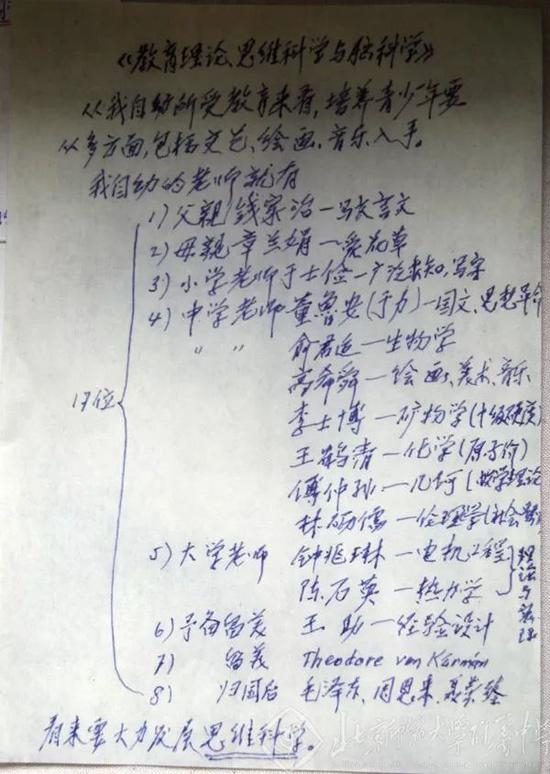 《教育理论、思维科学与脑科学》
从我自幼所受教育来看,培养青少年要
从多方面,包括文艺、绘画、音乐入手。
我自幼的老师就有
17位
1) 父親 钱家治—写文言文
2) 母親 章兰娟—爱花草
3) 小学老师 于士俭—广泛求知,写字
4) 中学老师 董鲁安(于力)—国文、思想革命
" " 俞君适—生物学
高希舜—绘画、美术、音乐
李士博—矿物学(十级硬度)
王鹤清—化学(原子价)
傅仲孙—几何(数学理论
林砺儒—伦理学(社会
5) 大学老师 钟兆琳—电机工程
陈石英—热力学
理论与实际
6) 予备留美 王助—经验设计
7) 留美 Theodore von Kármán
8) 归国后 毛泽东、周恩来、聂荣臻
看来要大力发展思维科学。